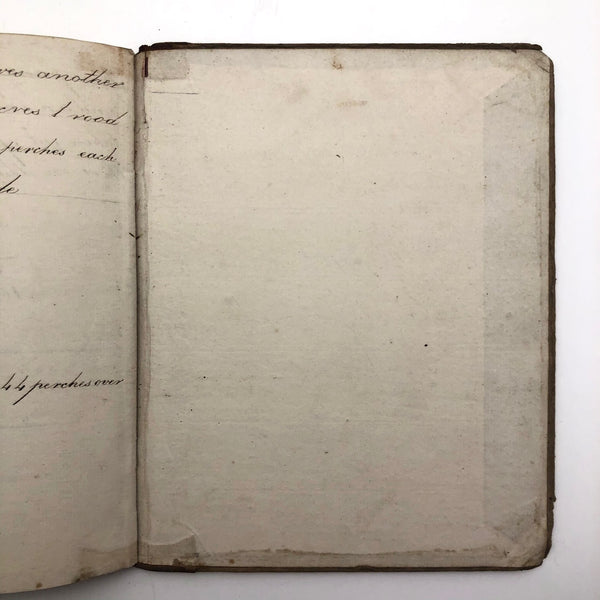 another
acres 1 rood
perches each
44 perches over